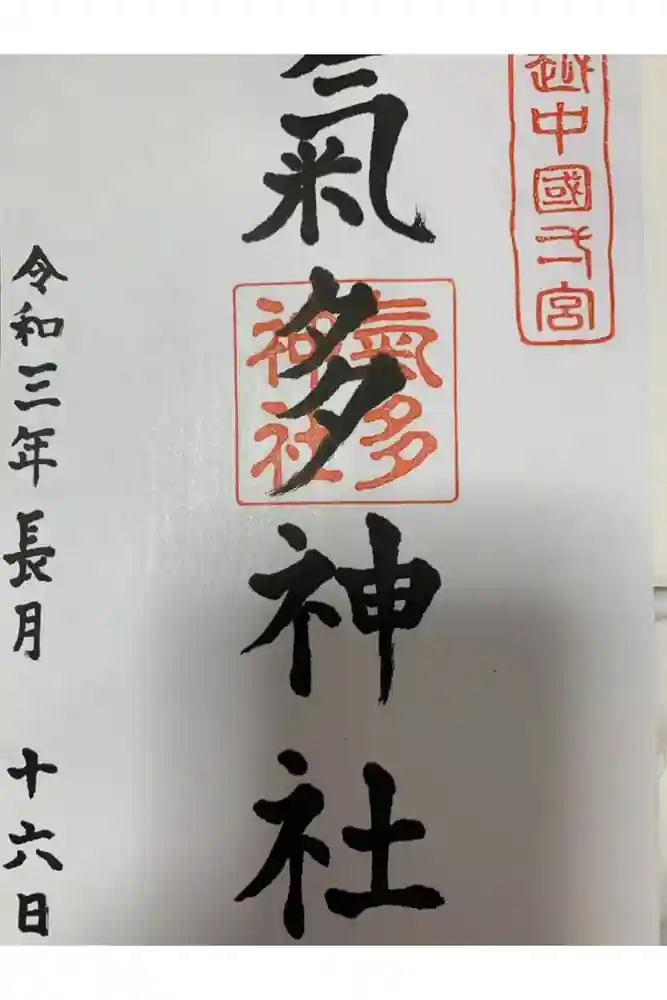 越中國弌宮
氣多神社
氣多
神社
令和三年長月 十六日